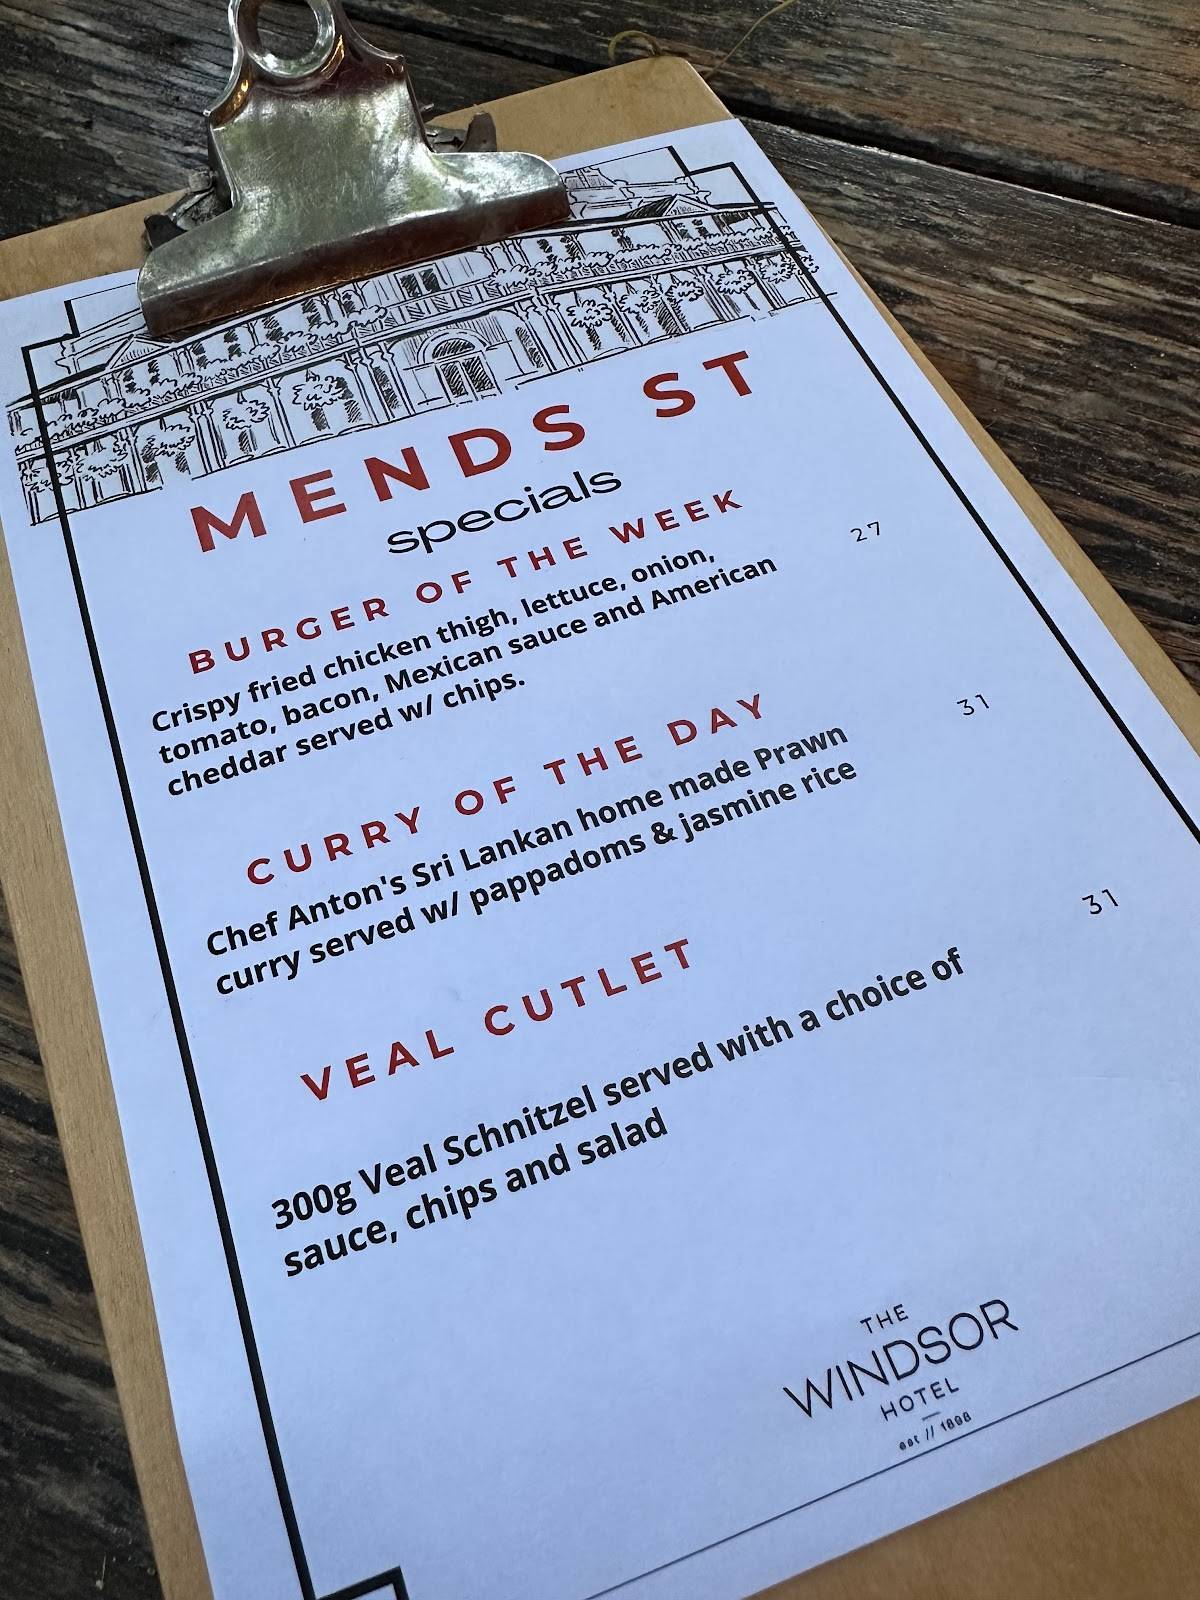 MENDS ST
specials
BURGER OF THE WEEK
27
Crispy fried chicken thigh, lettuce, onion,
tomato, bacon, Mexican sauce and American
cheddar served w/ chips.
CURRY OF THE DAY
31
Chef Anton's Sri Lankan home made Prawn
curry served w/ pappadoms & jasmine rice
VEAL CUTLET
31
300g Veal Schnitzel served with a choice of
sauce, chips and salad
THE
WINDSOR
HOTEL
est // 1898